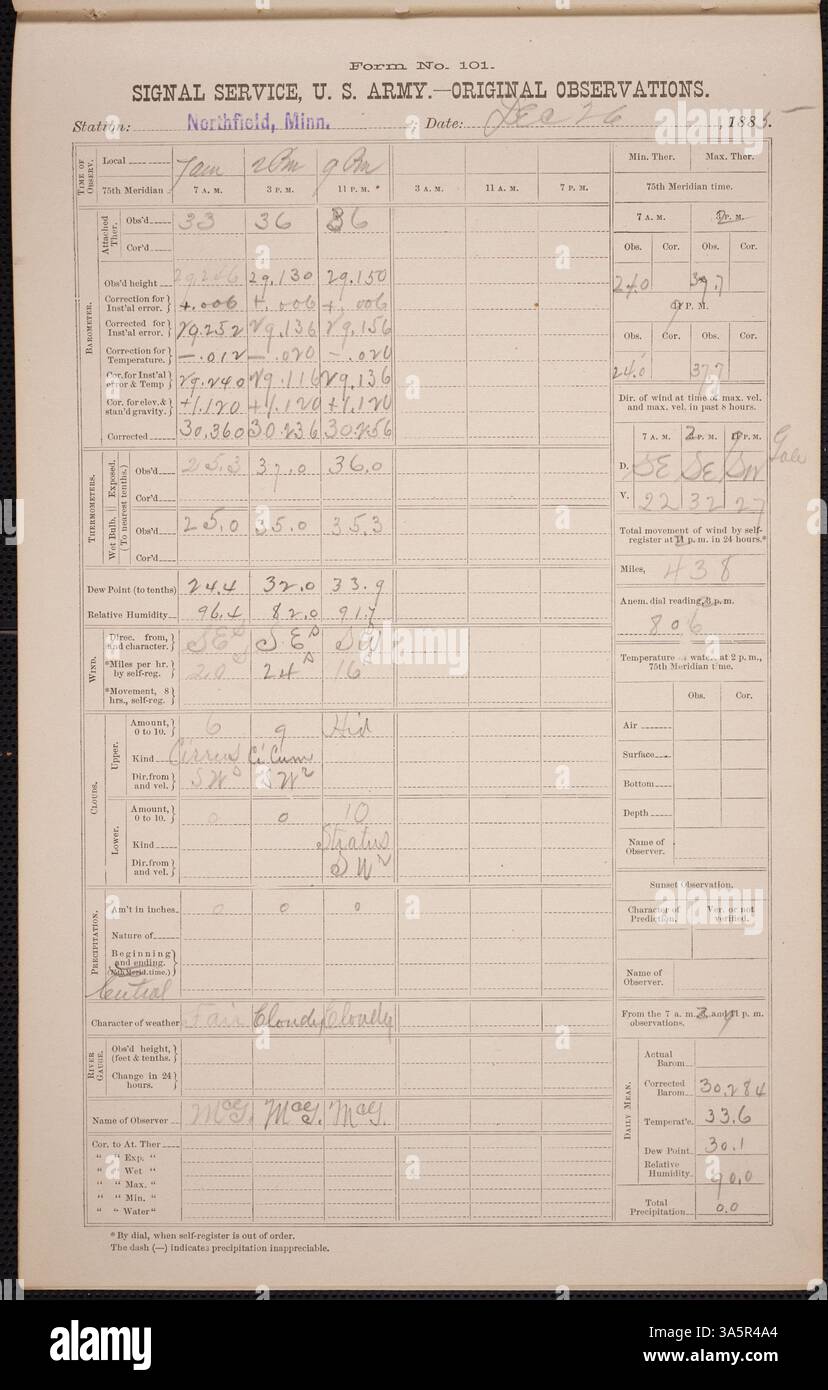 Form No. 101.
SIGNAL SERVICE, U. S. ARMY.—ORIGINAL OBSERVATIONS.
Station: Northfield, Minn. ; Date: Dec 26, 1885.
TIME OF OBSERV.
Local 7am 2 Pm 9 Pm
75th Meridian 7 A. M. 3 P. M. 11 P. M. * 3 A. M. 11 A. M. 7 P. M.
BAROMETER.
Attached Ther.
Obs'd 33 36 36
Cor'd
Obs'd height 29.246 29.130 29.150
Correction for Inst'al error. +.006 +.006 +.006
Corrected for Inst'al error. 29.252 29.136 29.156
Correction for Temperature. —.012 —.020 —.020
Cor. for Inst'al error & Temp 29.240 29.116 29.136
Cor. for elev. & stan'd gravity. +1.120 +1.120 +1.120
Corrected 30.360 30.236 30.256
THERMOMETERS.
(To nearest tenths.)
Exposed.
Obs'd 25.3 37.0 36.0
Cor'd
Wet Bulb.
Obs'd 25.0 35.0 35.3
Cor'd
Dew Point (to tenths) 24.4 32.0 33.9
Relative Humidity 96.4 82.0 91.7
WIND.
Direc. from, and character. SE SE SW
*Miles per hr. by self-reg. 20 24 16
*Movement, 8 hrs., self-reg.
CLOUDS.
Upper.
Amount, 0 to 10. 6 9 Hid
Kind Cirrus Ci Cum
Dir. from and vel. SW SW
Lower.
Amount, 0 to 10. 0 0 10
Kind Stratus
Dir. from and vel. SW
PRECIPITATION.
Am't in inches 0 0 0
Nature of
Beginning and ending. (75th Merid. time.)
Central
Character of weather Fair Cloudy Cloudy
RIVER GAUGE.
Obs'd height, (feet & tenths.)
Change in 24 hours.
Name of Observer McG. McG. McG.
Cor. to At. Ther
“ “ Exp. “
“ “ Wet “
“ “ Max. “
“ “ Min. “
“ “ Water “
* By dial, when self-register is out of order.
The dash (—) indicates precipitation inappreciable.
Min. Ther. Max. Ther.
75th Meridian time.
7 A. M. P. M.
Obs. Cor. Obs. Cor.
24.0 39.7
P. M.
Obs. Cor. Obs. Cor.
24.0 37.7
Dir. of wind at time of max. vel. and max. vel. in past 8 hours.
7 A. M. 2 P. M. P. M.
D. SE SE SW Gale
V. 22 32 27
Total movement of wind by self-register at 2 p. m. in 24 hours.*
Miles, 438
Anem. dial reading, p. m.
806
Temperature of water at 2 p. m., 75th Meridian time.
Obs. Cor.
Air
Surface
Bottom
Depth
Name of Observer.
Sunset Observation.
Character of Prediction. Ver. or not verified.
Name of Observer.
From the 7 a. m. 2 and 9 p. m. observations.
DAILY MEAN.
Actual Barom
Corrected Barom. 30.284
Temperat'e. 33.6
Dew Point 30.1
Relative Humidity 90.0
Total Precipitation 0.0
alamy
a
alamy
Image ID: 3A5R4A4
www.alamy.com